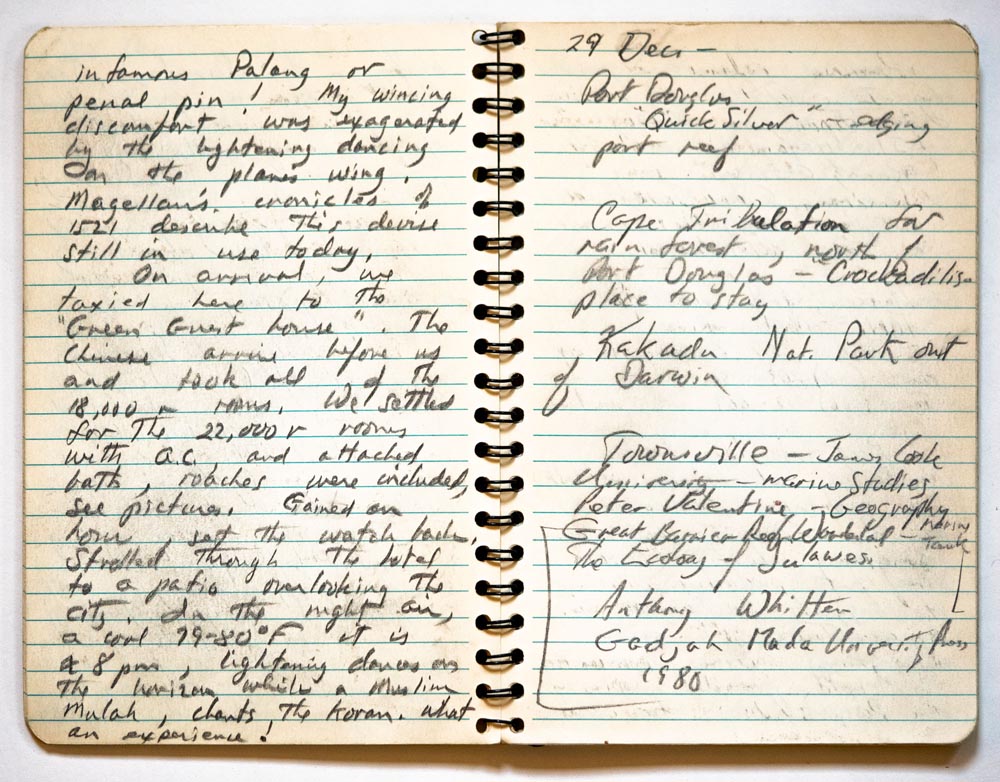 infamous Palang or
penal pin! My wincing
discomfort was exagerated
by the lightening dancing
on the planes wing.
Magellan's cronicles of
1521 describe this devise
still in use today.
On arrival, we
taxied here to the
"Green Guest house". The
Chinese arrive before us
and took all of the
18,000 r rooms. We settled
for the 22,000 r rooms
with a.c. and attached
bath, roaches were included,
see pictures. Gained an
hour, set the watch back.
Strolled through the hotel
to a patio overlooking the
city. In the night air,
a cool 79-80°F it is
8 pm, lightening dances on
the horizon while a Muslim
Mulah, chants, the Koran. What
an experience!
29 Dec -
Port Douglas
"Quick Silver"
port reef
Cape Tribulation for
rain forest, north of
Port Douglas - "Crockadilis
place to stay
Kakadu Nat. Park out
of Darwin
Townsville - James Cook
University - marine Studies
Peter Valentine - Geography
Great Barrier Reef Wonderland - marine
Tank
The Ecology of Sulawesi
Anthony Whitten
Gadjah Mada University Press
1980